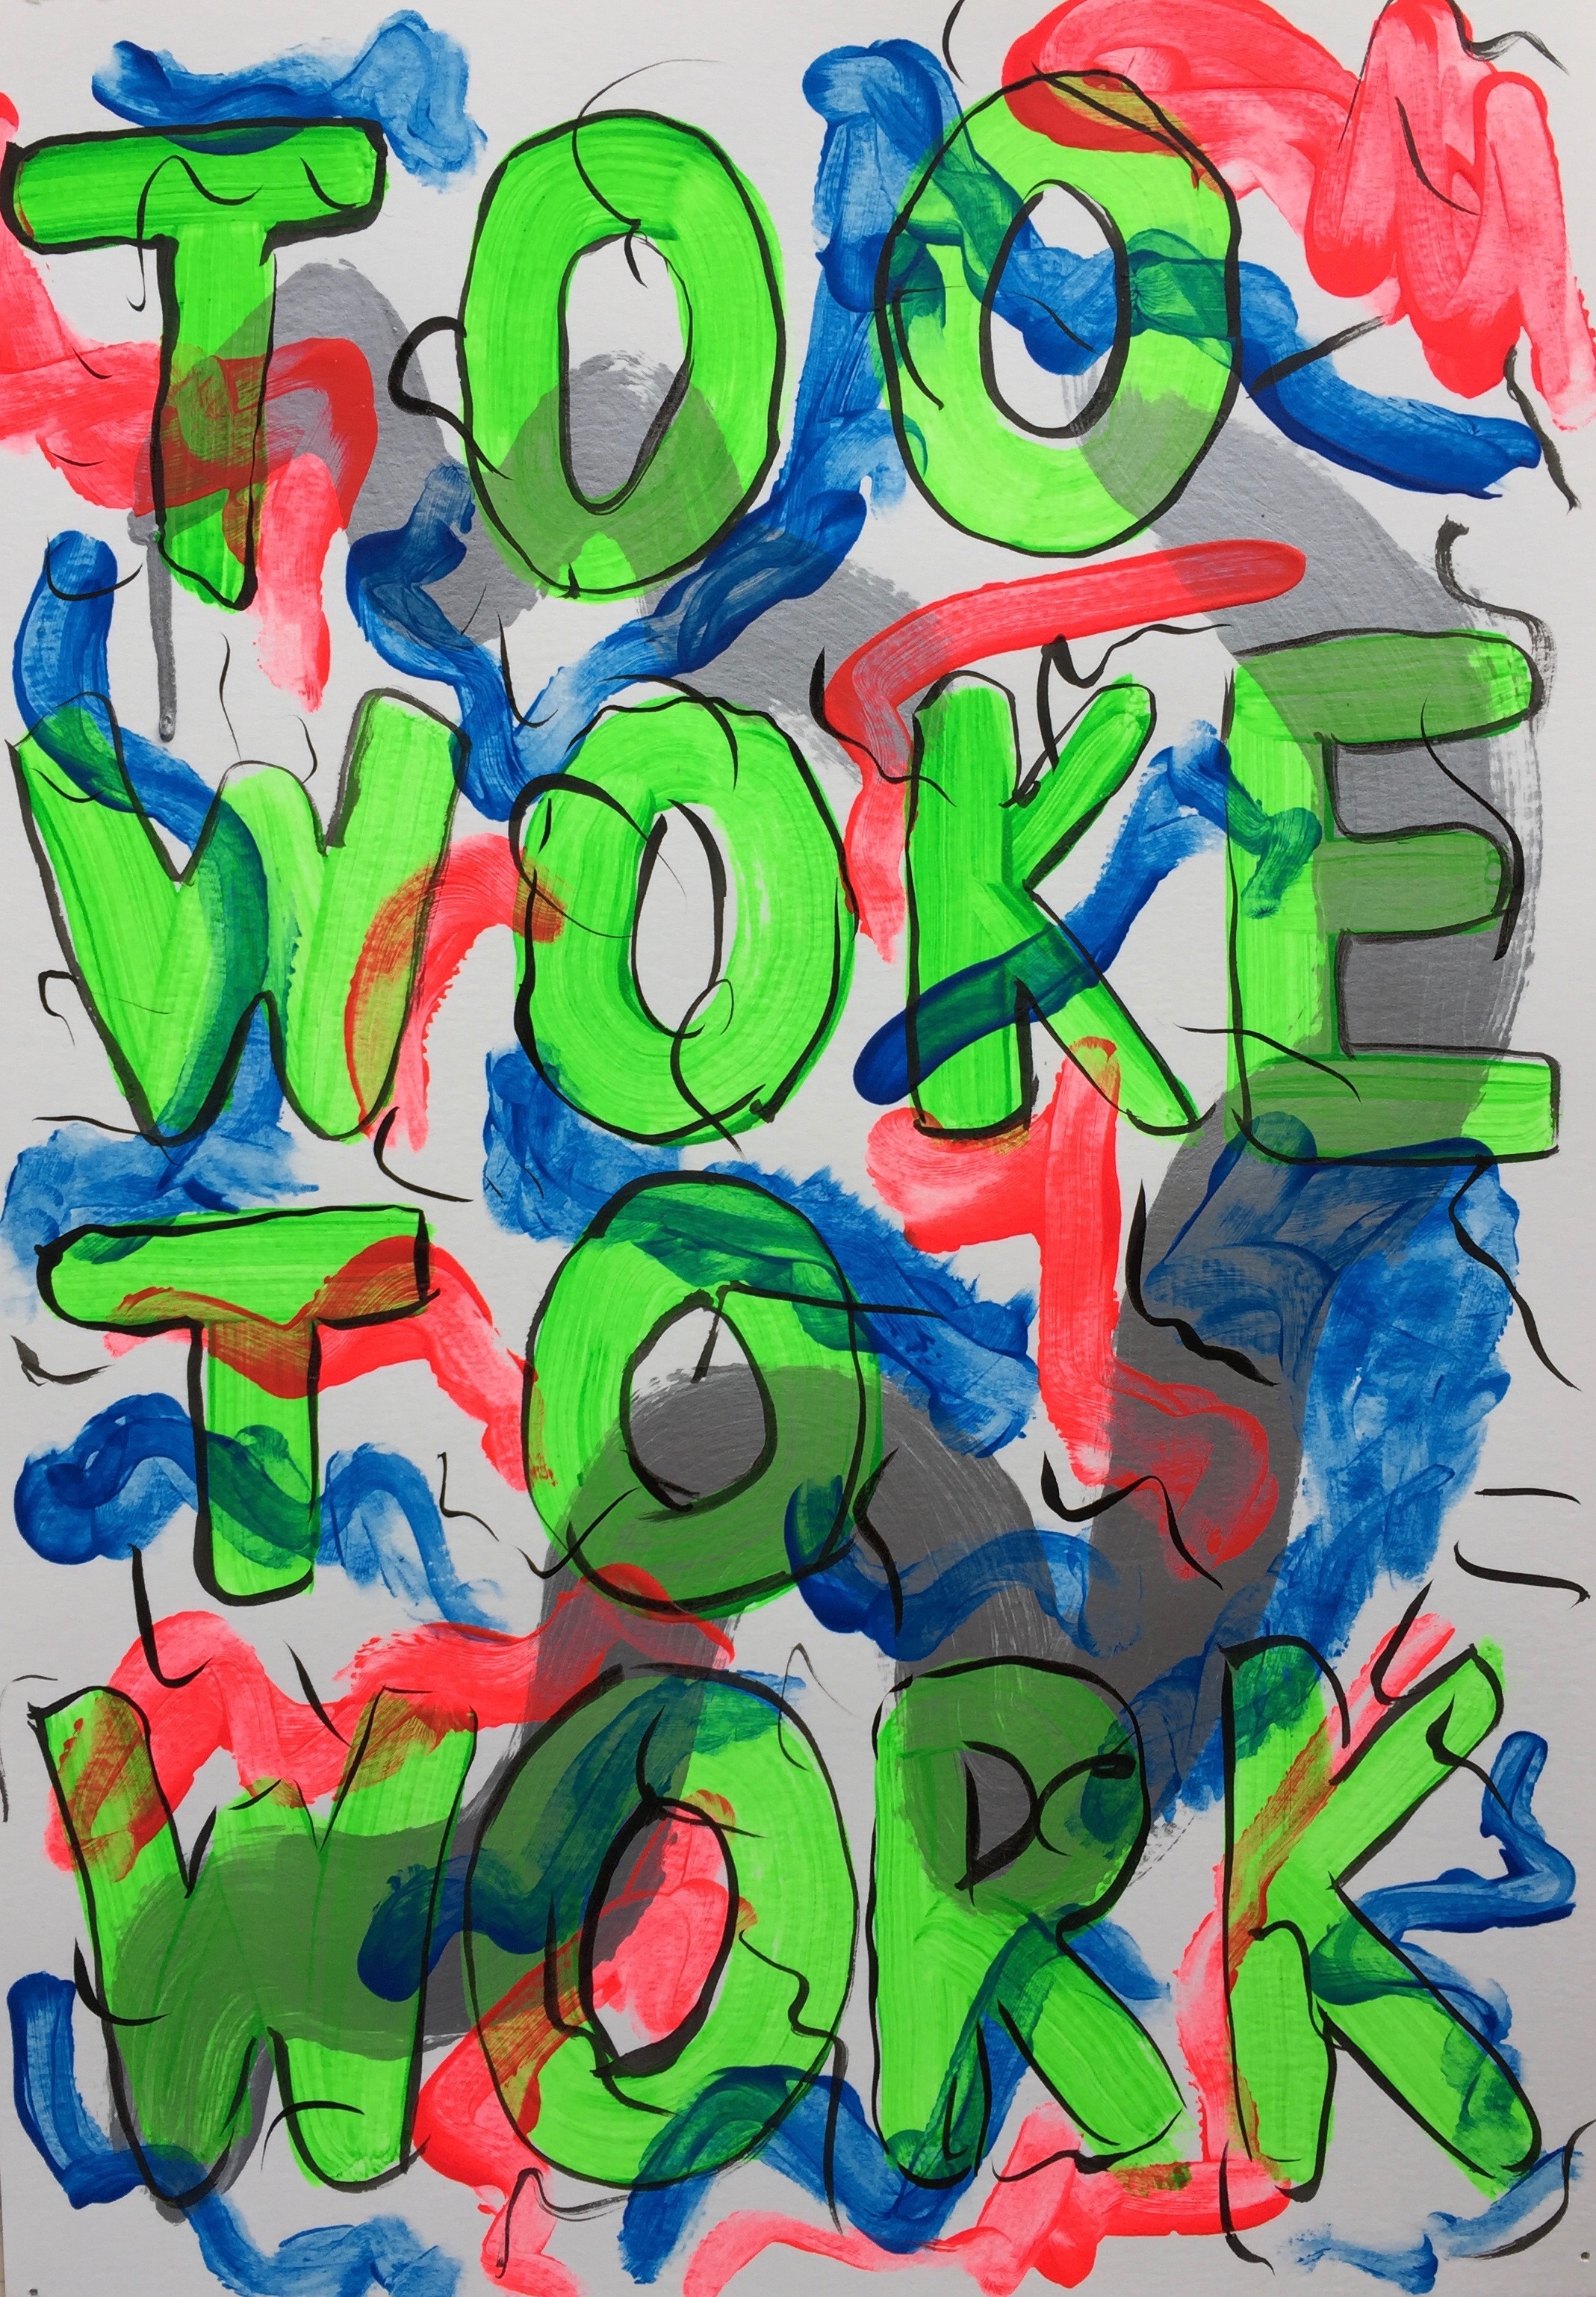 TOO
WOKE
TO
WORK